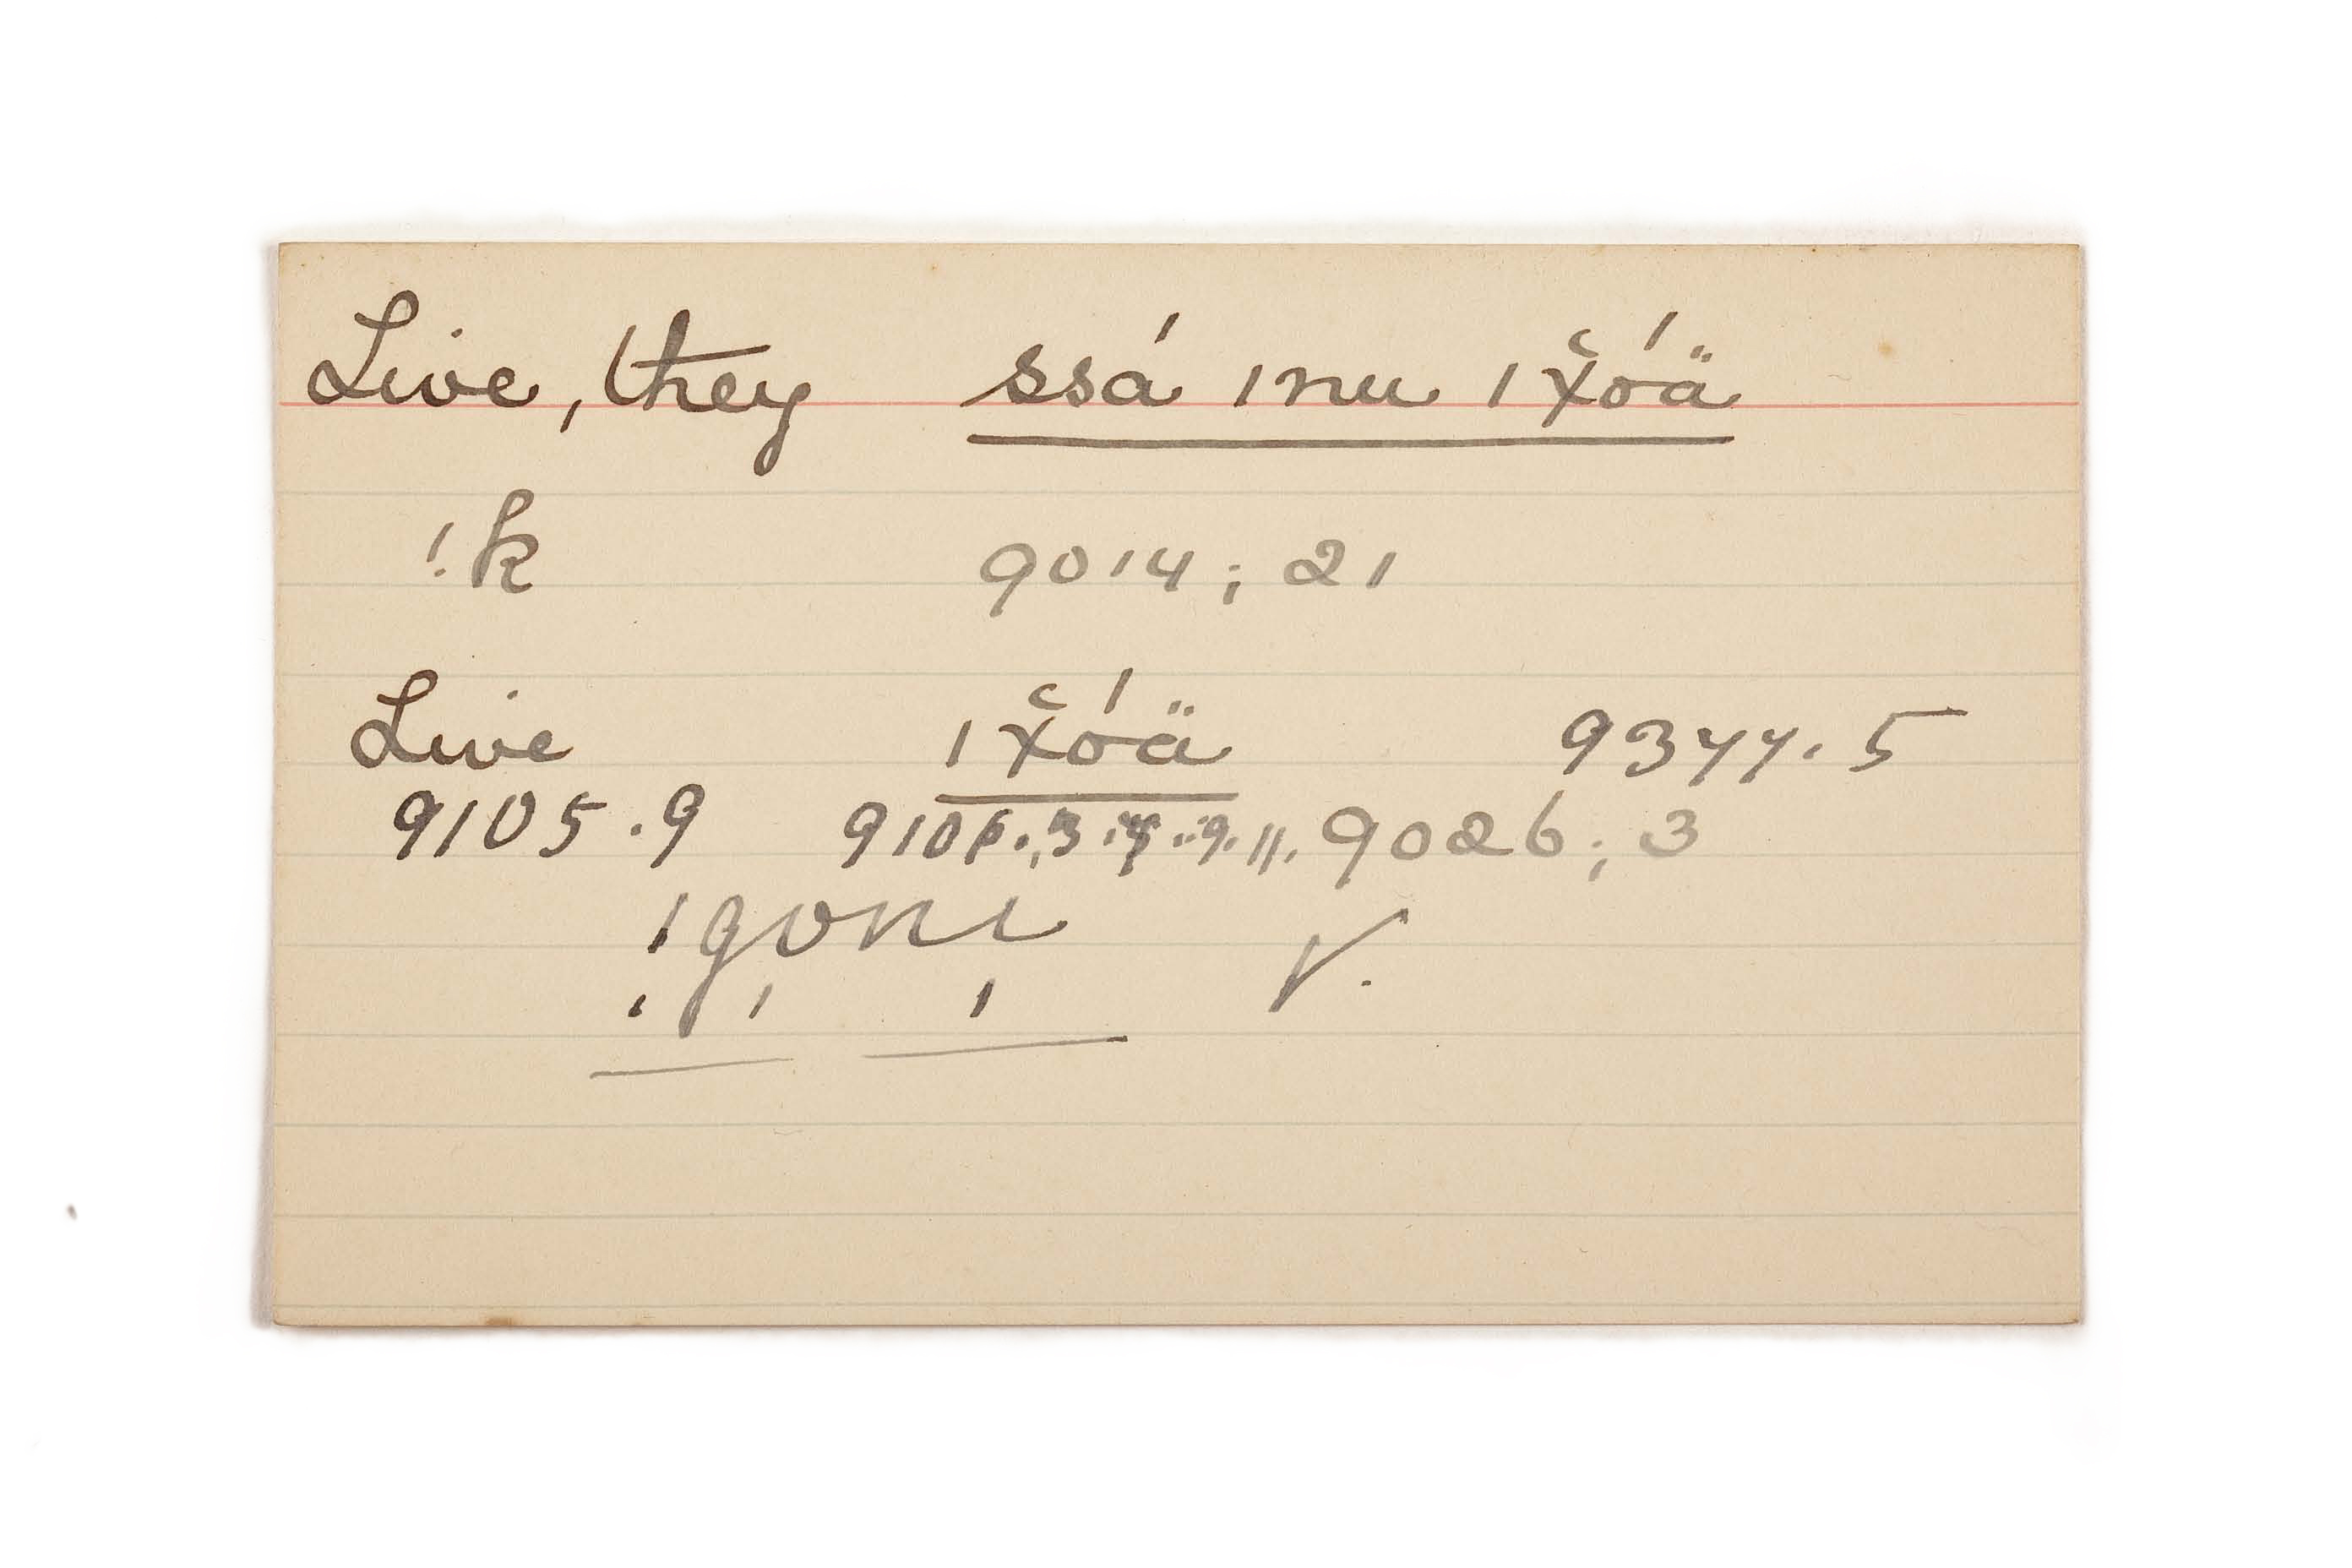 Live, they ssá ınu ıχ̆óä
!k 9014; 21
Live ıχ̆óä 9377.5
9105.9 9106. 9026; 3
!gom V.